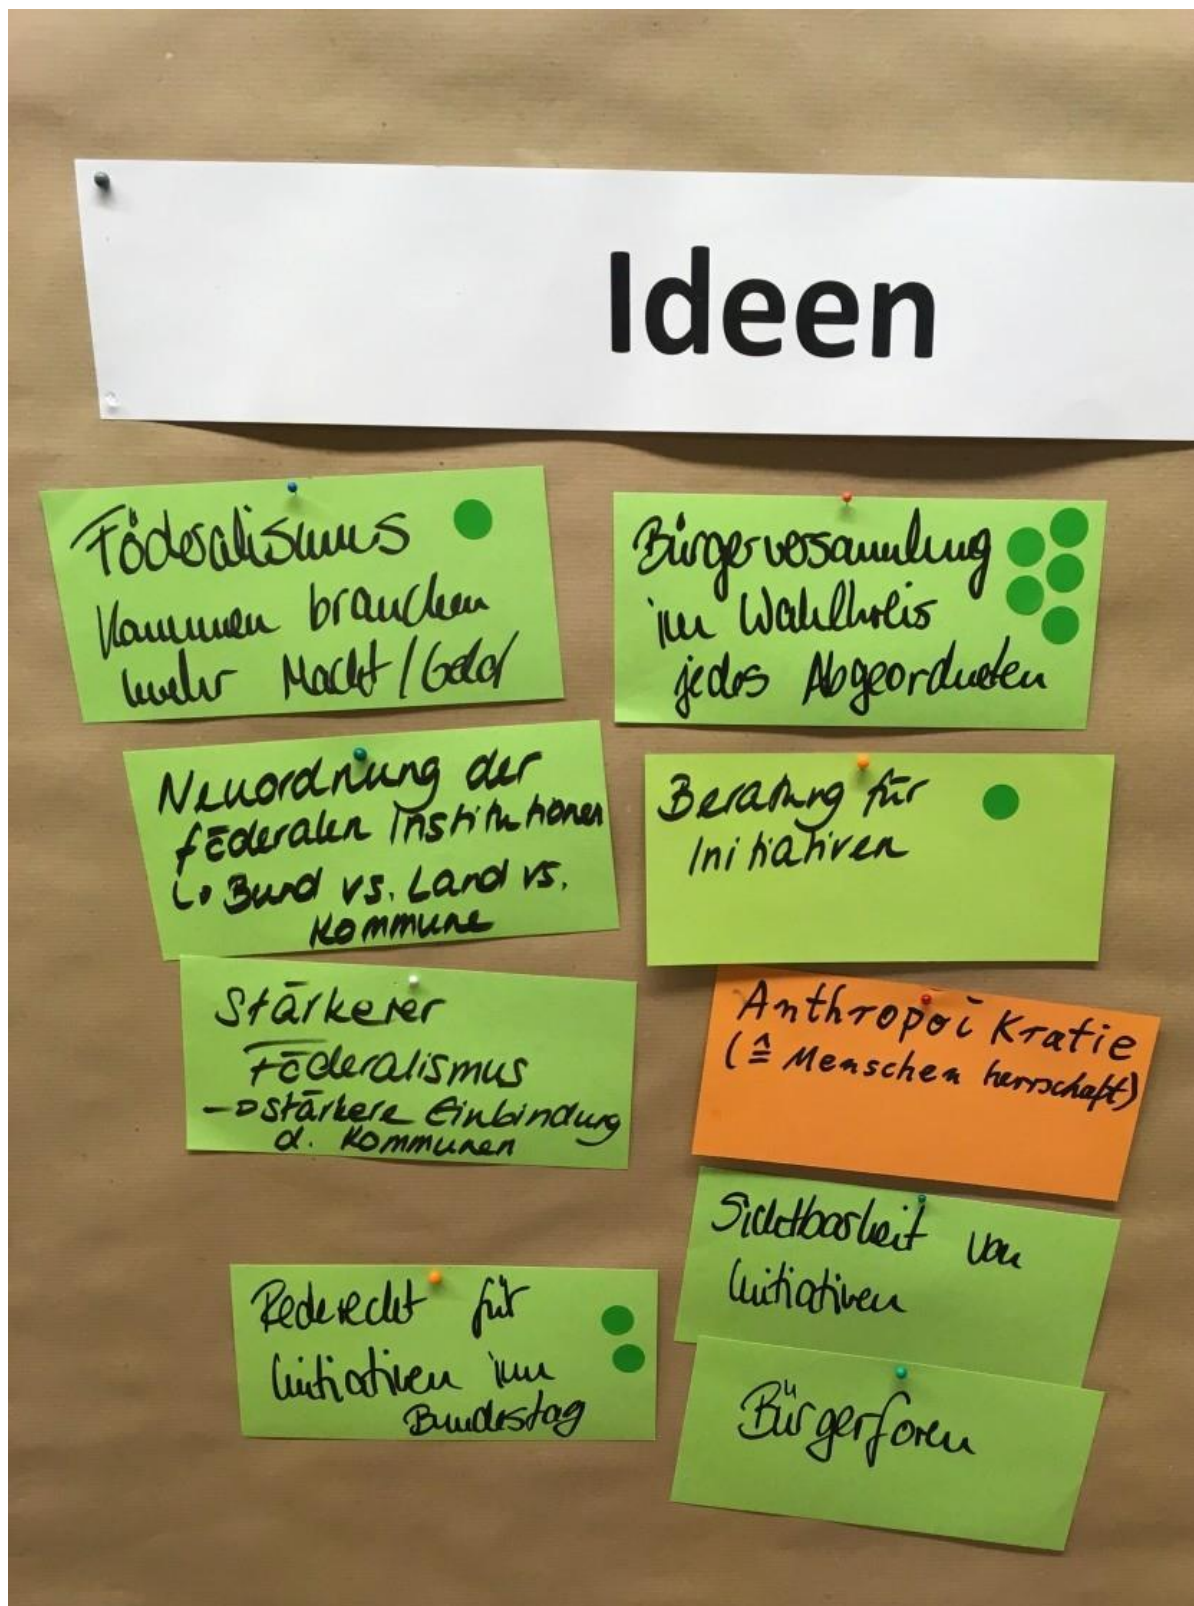 Ideen
Föderalismus
Kommunen brauchen
mehr Macht/Geld
Neuordnung der
föderalen Institutionen
↳ Bund vs. Land vs.
Kommune
Stärkerer
Föderalismus
→ stärkere Einbindung
d. Kommunen
Rederecht für
Initiativen im
Bundestag
Bürgerversammlung
im Wahlkreis
jedes Abgeordneten
Beratung für
Initiativen
Anthropoi Kratie
(≙ Menschenherrschaft)
Sichtbarkeit von
Initiativen
Bürgerforen